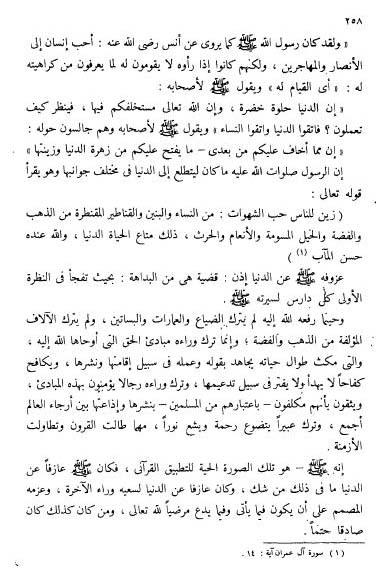 ٢٥٨
« ولقد كان رسول الله ﷺ كما يروى عن أنس رضى الله عنه : أحب إنسان إلى
الأنصار والمهاجرين ، ولكنهم كانوا إذا رأوه لا يقومون له لما يعرفون من كراهيته
له : « أى القيام له » ويقول ﷺ لأصحابه :
« إن الدنيا حلوة خضرة ، وإن الله تعالى مستخلفكم فيها ، فينظر كيف
تعملون ؟ فاتقوا الدنيا واتقوا النساء » ويقول ﷺ لأصحابه وهم جالسون حوله :
« إن مما أخاف عليكم من بعدى – ما يفتح عليكم من زهرة الدنيا وزينتها »
إن الرسول صلوات الله عليه ما كان ليتطلع إلى الدنيا فى مختلف جوانبها وهو يقرأ
قوله تعالى :
( زين للناس حب الشهوات : من النساء والبنين والقناطير المقنطرة من الذهب
والفضة والخيل المسومة والأنعام والحرث ، ذلك متاع الحياة الدنيا ، والله عنده
حسن المآب (١) )
عزوفه ﷺ عن الدنيا إذن : قضية هى من البداهة : بحيث تفجأ فى النظرة
الأولى كل دارس لسيرته ﷺ .
وحينما رفعه الله إليه لم يترك الضياع والعمارات والبساتين ، ولم يترك الآلاف
المؤلفة من الذهب والفضة ؛ وإنما ترك وراءه مبادئ الحق التى أوحاها الله إليه ،
والتى مكث طوال حياته يجاهد بقوله وعمله فى سبيل إقامتها ونشرها ، ويكافح
كفاحاً لا يهدأ ولا يفتر فى سبيل تدعيمها ، وترك وراءه رجالا يؤمنون بهذه المبادئ ،
ويثقون بأنهم مكلفون – باعتبارهم من المسلمين – بنشرها وإذاعتها بين أرجاء العالم
أجمع ، وترك عبيراً يتضوع رحمة ويشع نوراً ، مهما طالت القرون وتطاولت
الأزمنة .
إنه ﷺ – هو تلك الصورة الحية للتطبيق القرآنى ، فكان ﷺ عازفاً عن
الدنيا ما فى ذلك من شك ، وكان عازفا عن الدنيا لسعيه وراء الآخرة ، وعزمه
المصمم على أن يكون فيما يأتى وفيما يدع مرضياً لله تعالى ، ومن كان كذلك كان
صادقا حتماً .
(١) سورة آل عمران آية : ١٤ .